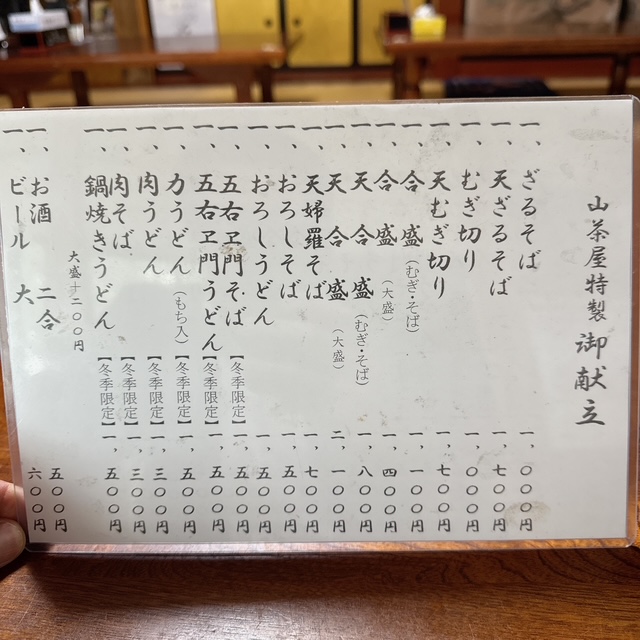 山茶屋特製 御献立
一、ざるそば 一、〇〇〇円
一、天ざるそば 一、七〇〇円
一、むぎ切り 一、〇〇〇円
一、天むぎ切り 一、七〇〇円
一、合盛(むぎ・そば) 一、一〇〇円
一、合盛(大盛) 一、四〇〇円
一、天合盛(むぎ・そば) 一、八〇〇円
一、天合盛(大盛) 二、一〇〇円
一、天婦羅そば 一、七〇〇円
一、おろしそば 一、五〇〇円
一、おろしうどん 一、五〇〇円
一、五右ヱ門そば【冬季限定】 一、五〇〇円
一、五右ヱ門うどん【冬季限定】 一、五〇〇円
一、力うどん(もち入)【冬季限定】 一、五〇〇円
一、肉うどん【冬季限定】 一、三〇〇円
一、肉そば【冬季限定】 一、三〇〇円
一、鍋焼きうどん【冬季限定】 一、五〇〇円
大盛+二〇〇円
一、お酒 二合 五〇〇円
一、ビール 大 六〇〇円